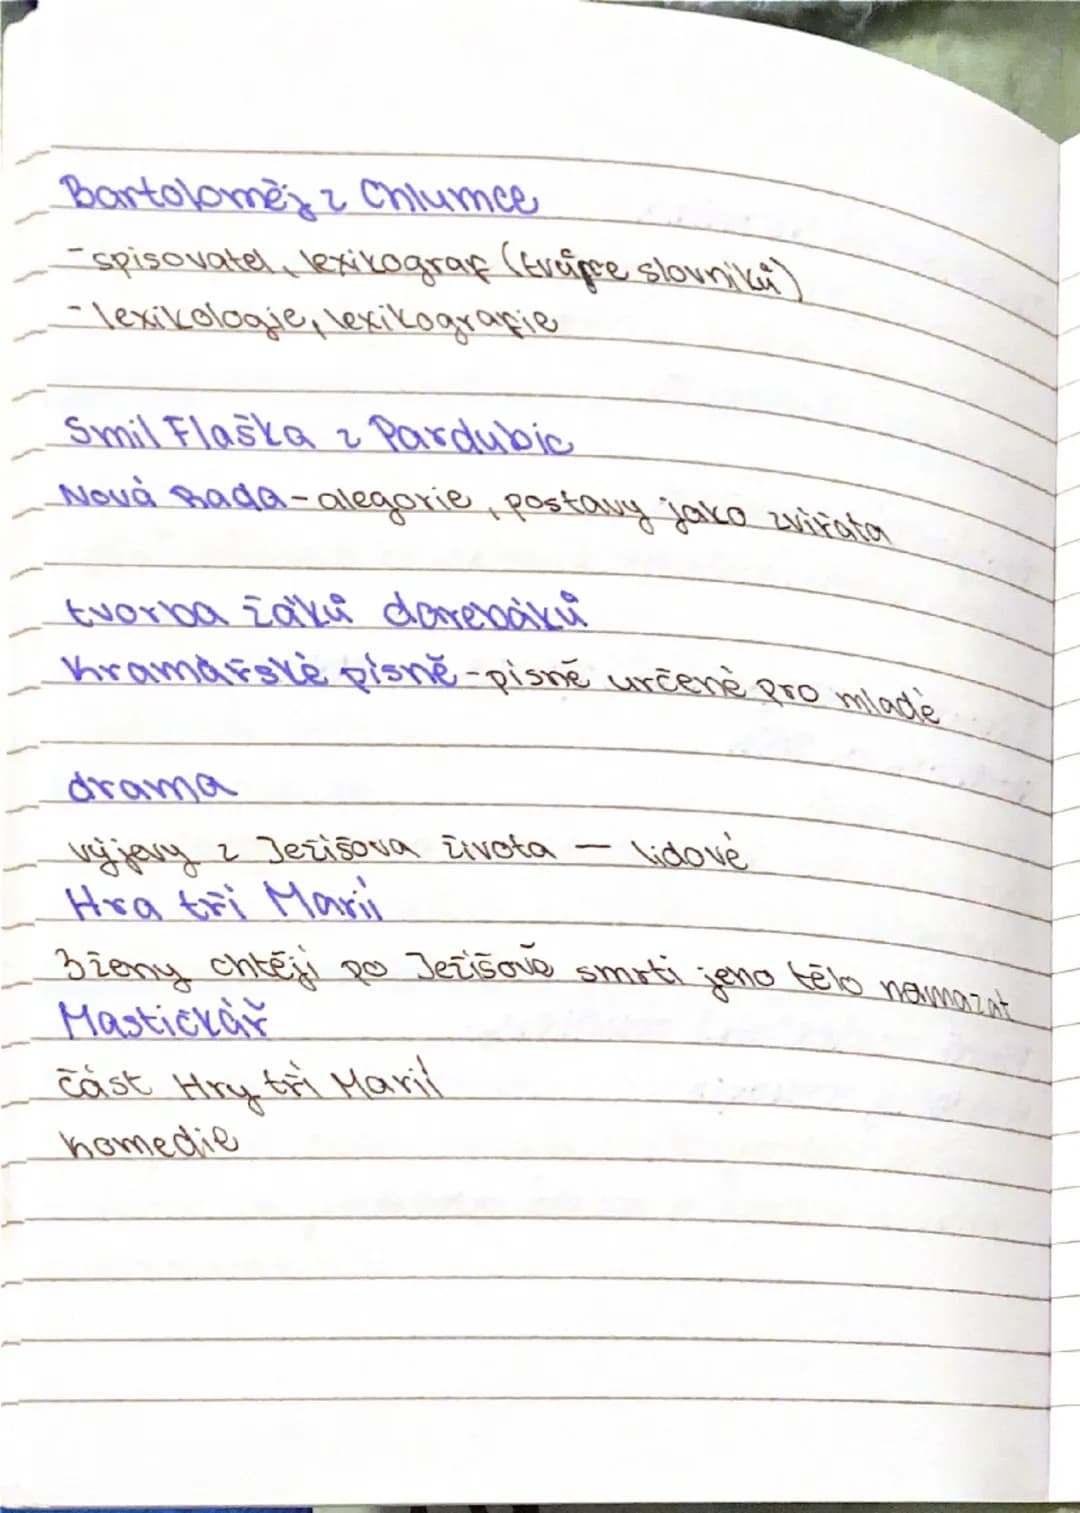 Bartoloměj z Chlumce
- spisovatel, lexikograf (tvůrce slovníků)
- lexikologie, lexikografie
Smil Flaška z Pardubic
Nová Rada - alegorie, postavy jako zvířata
tvorba žáků darebáků
Kramářské písně - písně určené pro mladé
drama
výjevy z Ježišova života — lidové
Hra tří Marií
3 ženy chtějí po Ježišově smrti jeho tělo namazat
Mastičkář
část Hry tří Marií
komedie